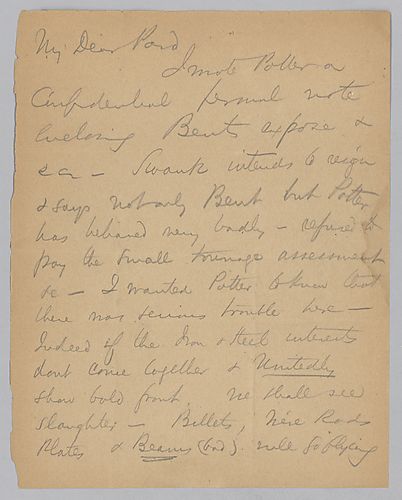 My Dear Pard
I wrote Potter a
Confidential personal note
Enclosing Bent's expose &
&c – Swank intends to resign
& says not only Bent but Potter
has behaved very badly – refused to
pay the small tonnage assessment
&c – I wanted Potter to know that
there was serious trouble here –
Indeed if the Iron & Steel interests
dont come together & Unitedly
show bold front, we shall see
slaughter – Billets, Wire Rods
Plates & Beams (bad) will go flying